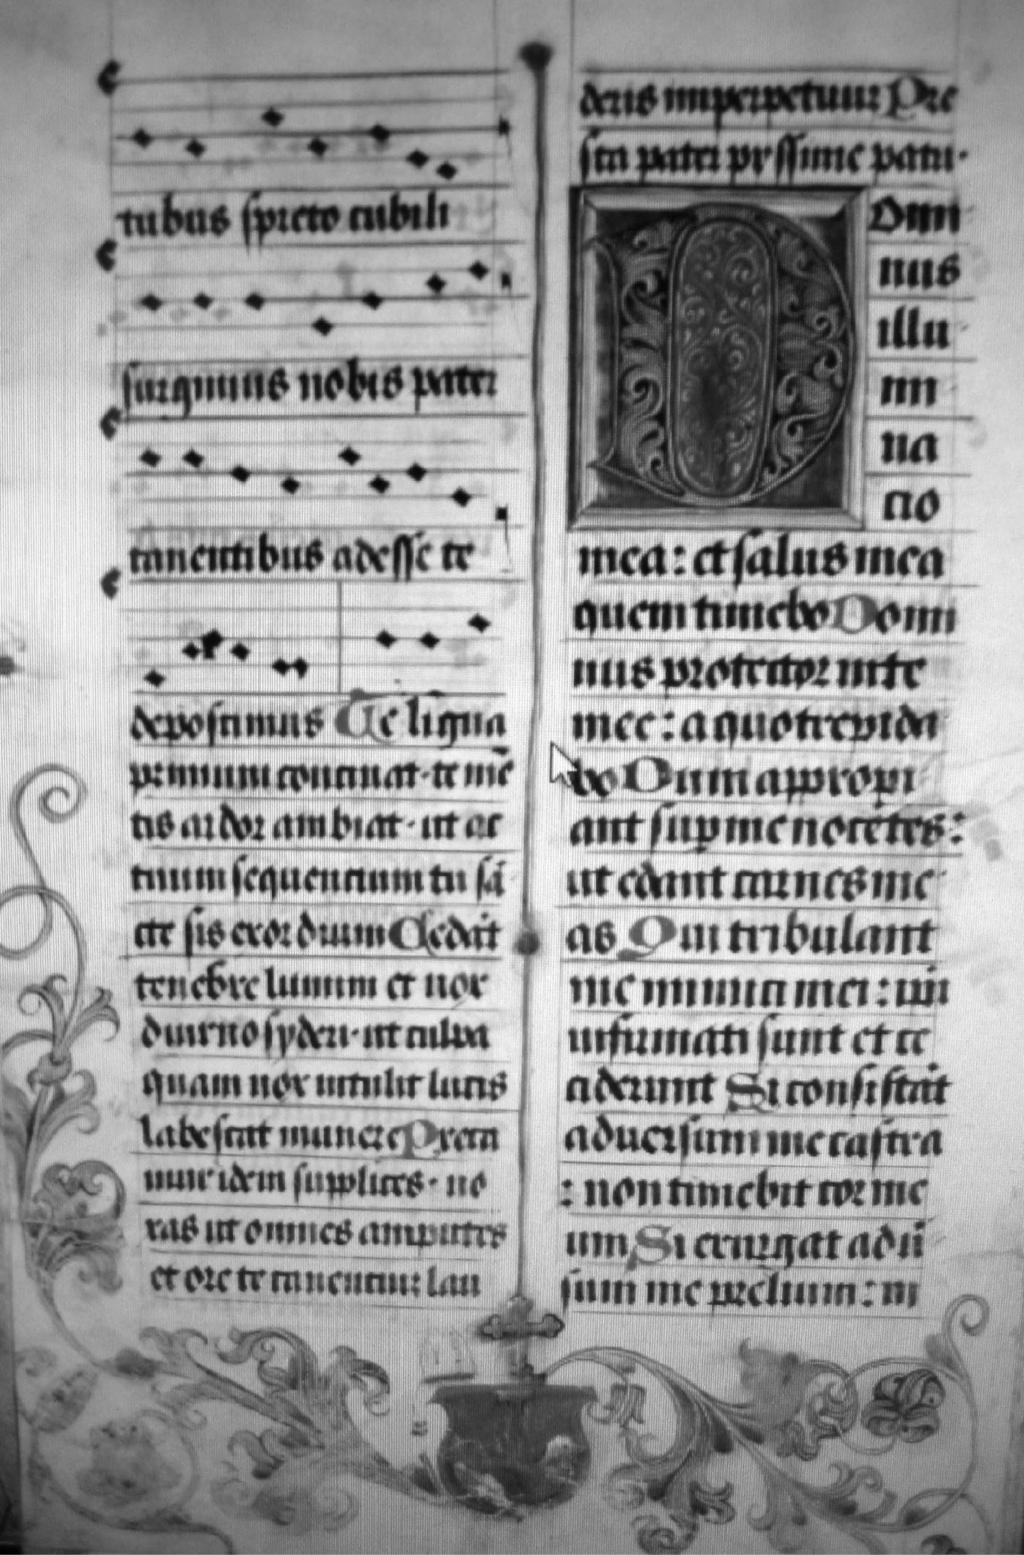 tubus spreto cubili
surgimus nobis pater
canentibus adesse te
deposcimus Te ligua
primum concinat·te mē
tis ardor ambiat·ut ac
tuum sequencium tu sā
cte sis exordium Cedāt
tenebre lumini et nox
diurno syderi·ut culpa
quam nox intulit lucis
labescat munere Preca
mur idem supplices·no
xas ut omnes amputes
et ore te canencium lau
deris imperpetuum Pre
sta pater pyssime patri·
Domi
nus
illu
mi
na
cio
mea: et salus mea
quem timebo Domi
nus protector vite
mee: a quo trepida
bo Dum appropi
ant sup me nocētes:
ut edant carnes me
as Qui tribulant
me inimici mei: ipi
infirmati sunt et ce
ciderunt Si consistāt
adversum me castra
: non timebit cor me
um Si exurgat adū
sum me prelium: in